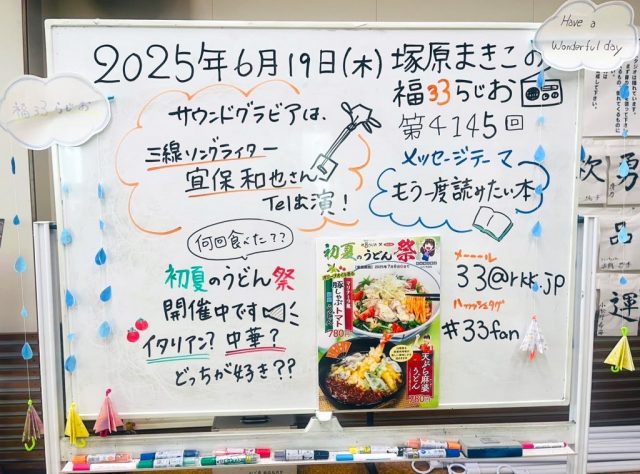 Have a
Wonderful day
福33らじお
2025年6月19日(木)
塚原まきこの
福33らじお
第4145回
サウンドグラビアは、
三線ソングライター
宜保和也さん
Tel出演!
メッセージテーマ
もう一度読みたい本
何回食べた??
初夏のうどん祭
開催中です
イタリアン? 中華?
どっちが好き??
初夏のうどん祭
豚しゃぶトマト
780円
天ぷら麻婆
うどん
780円
メーール
33@rkk.jp
ハッシュタグ
#33fan
勇
品
運